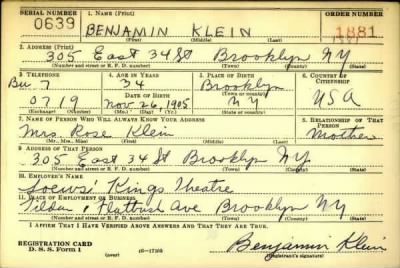 SERIAL NUMBER 1. NAME (Print) ORDER NUMBER
0639 BENJAMIN KLEIN 1881
(First) (Middle) (Last)
2. ADDRESS (Print)
305 East 34 St Brooklyn NY
(Number and street or R. F. D. number) (Town) (County) (State)
3. TELEPHONE 4. AGE IN YEARS 5. PLACE OF BIRTH 6. COUNTRY OF CITIZENSHIP
Bu 7 34 Brooklyn
DATE OF BIRTH (Town or county)
0719 Nov 26, 1905 NY USA
(Exchange) (Number) (Mo.) (Day) (Yr.) (State or country)
7. NAME OF PERSON WHO WILL ALWAYS KNOW YOUR ADDRESS 8. RELATIONSHIP OF THAT PERSON
Mrs. Rose Klein Mother
(Mr., Mrs., Miss) (First) (Middle) (Last)
9. ADDRESS OF THAT PERSON
305 East 34 St Brooklyn NY
(Number and street or R. F. D. number) (Town) (County) (State)
10. EMPLOYER'S NAME
Loews' Kings Theatre
11. PLACE OF EMPLOYMENT OR BUSINESS
Tilden & Flatbush Ave Brooklyn NY
(Number and street or R. F. D. number) (Town) (County) (State)
I AFFIRM THAT I HAVE VERIFIED ABOVE ANSWERS AND THAT THEY ARE TRUE.
REGISTRATION CARD Benjamin Klein
D. S. S. Form 1 (over) (Registrant's signature)